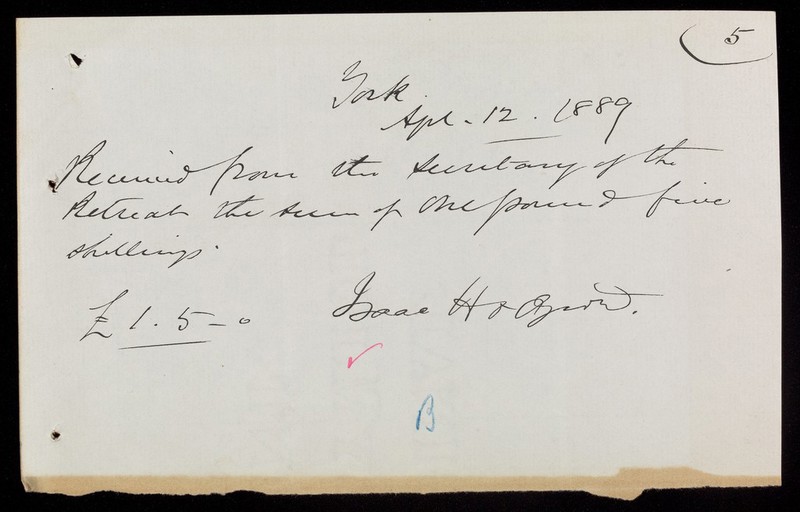 5
York
Apl. 12. 1889
Received from the Secretary of the
Retreat the sum of One pound five
shillings.
£1.5-0
Isaac Hodgson.
B